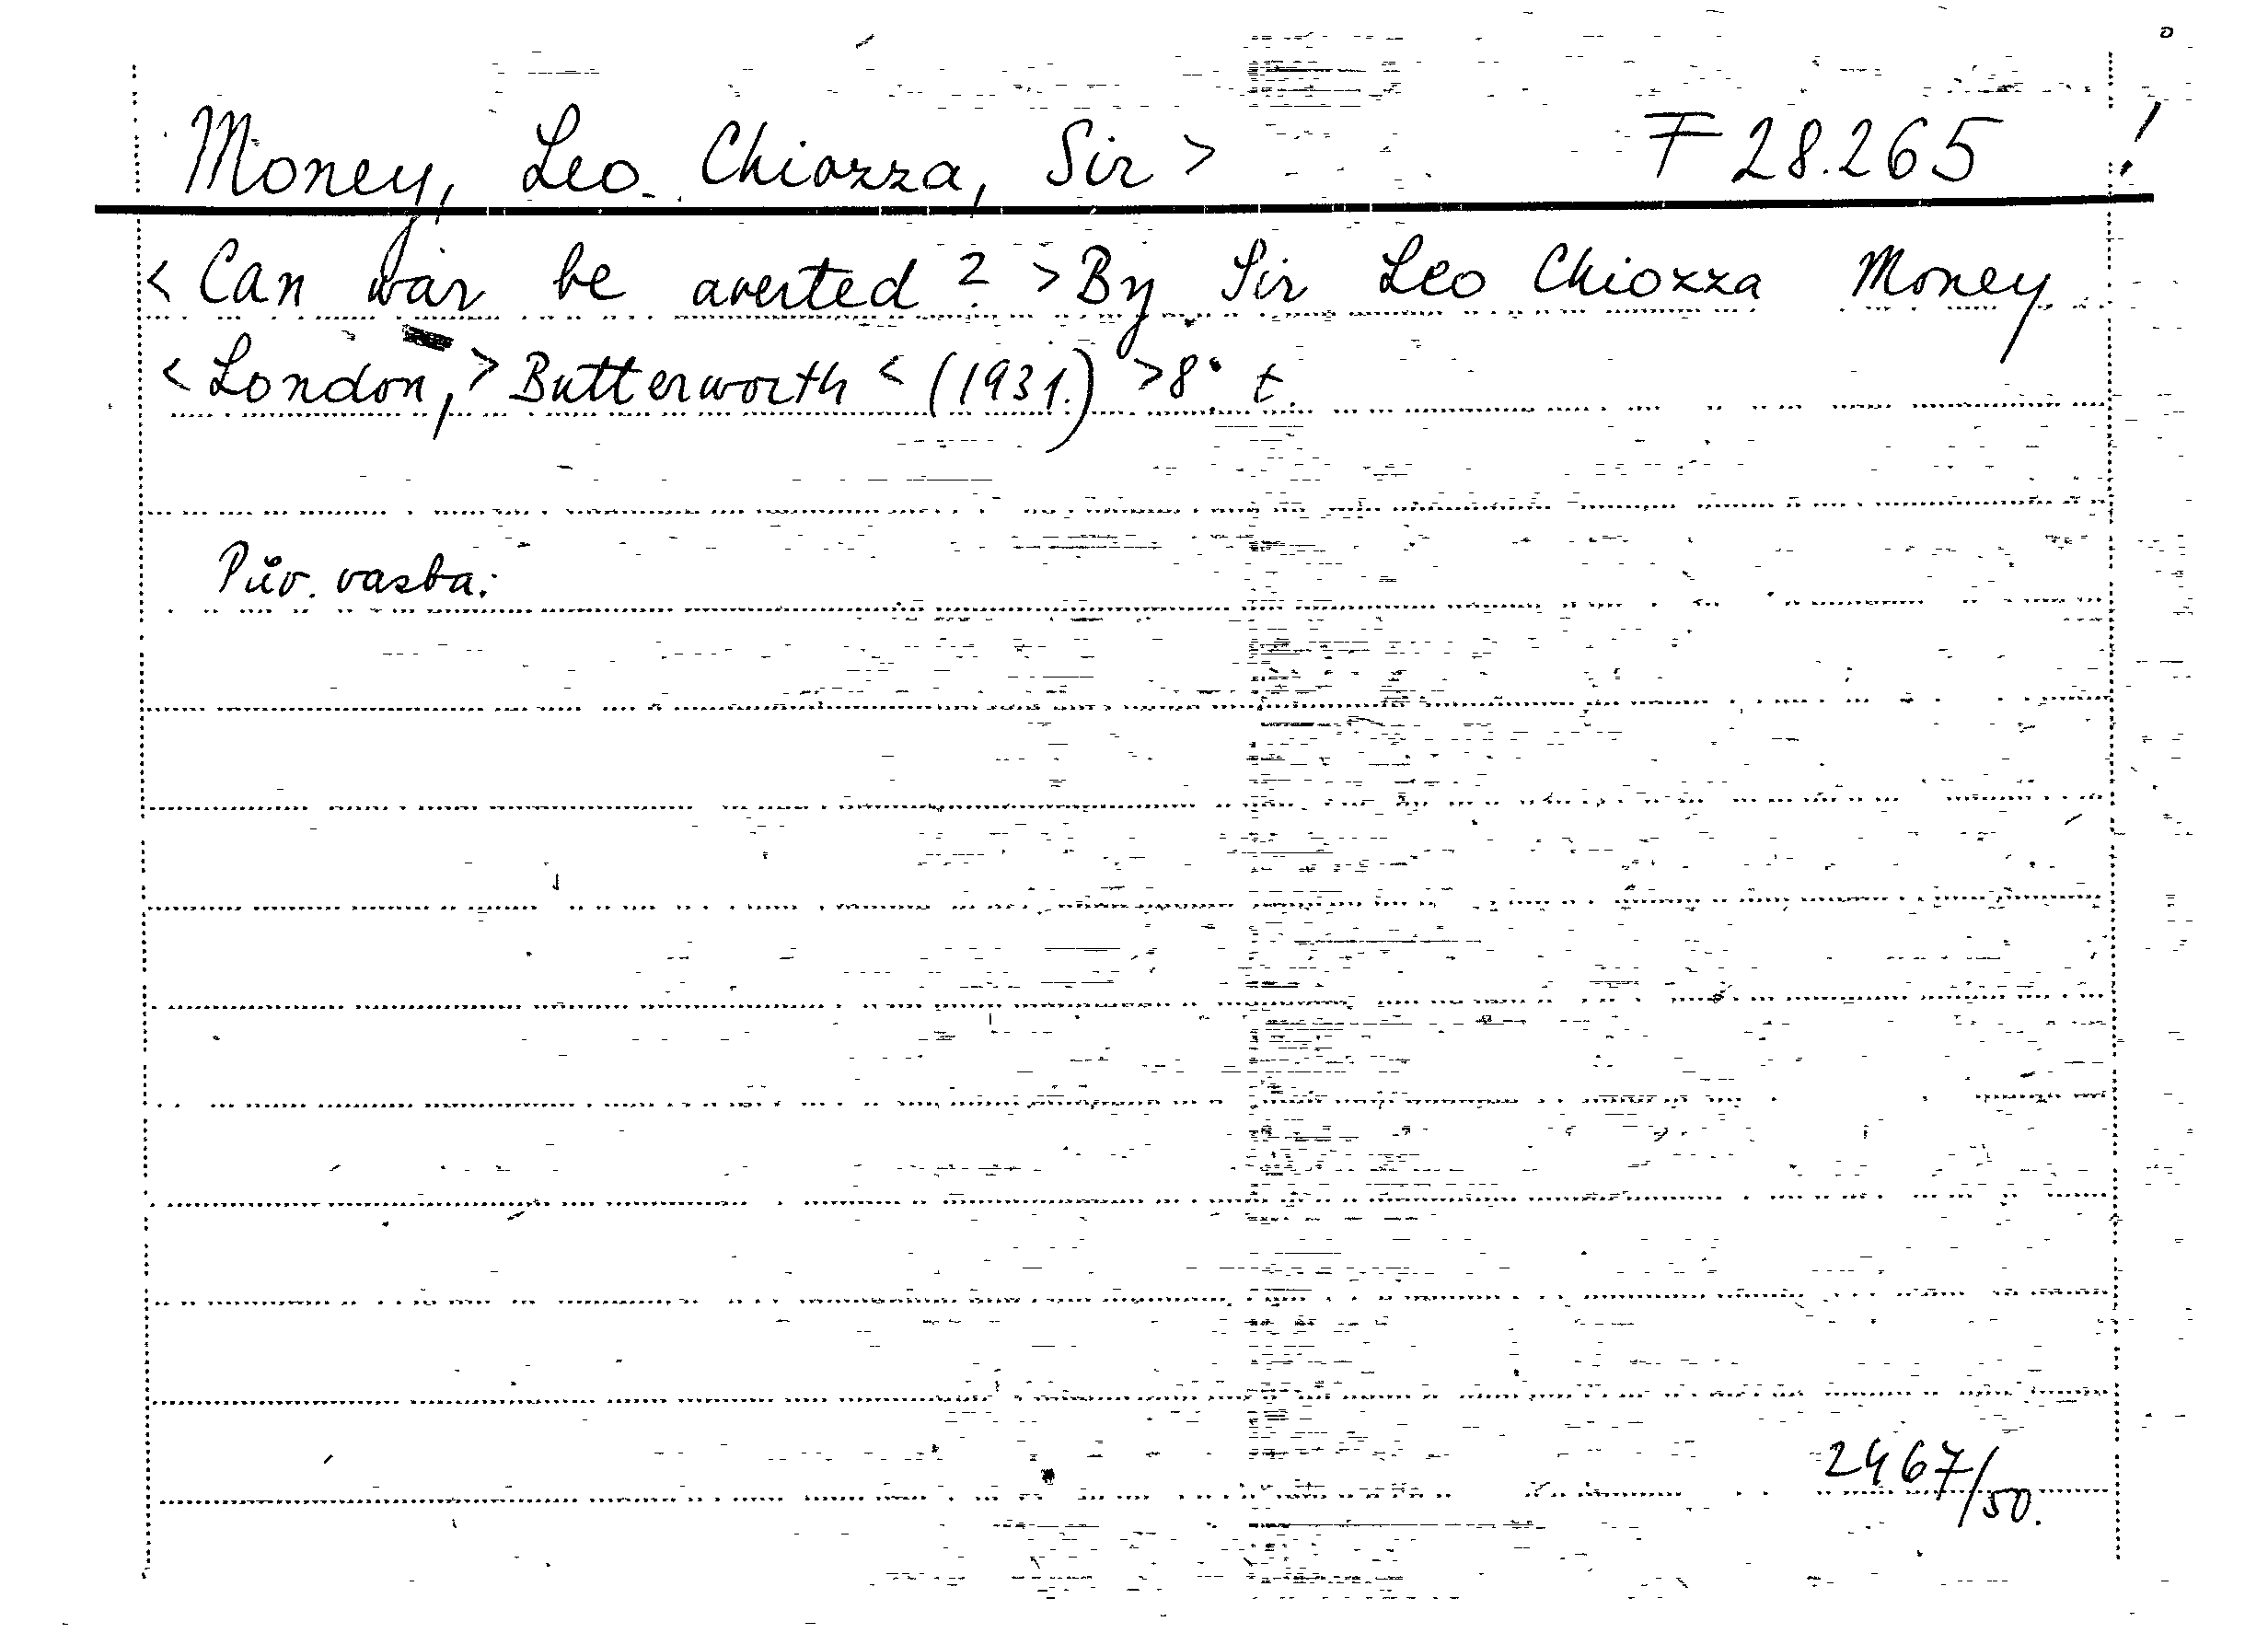 Money, Leo Chiozza, Sir > F 28.265 !
< Can war be averted? > By Sir Leo Chiozza Money
< London, > Butterworth < (1931.) > 8° t.
Pův. vazba.
2467/50.